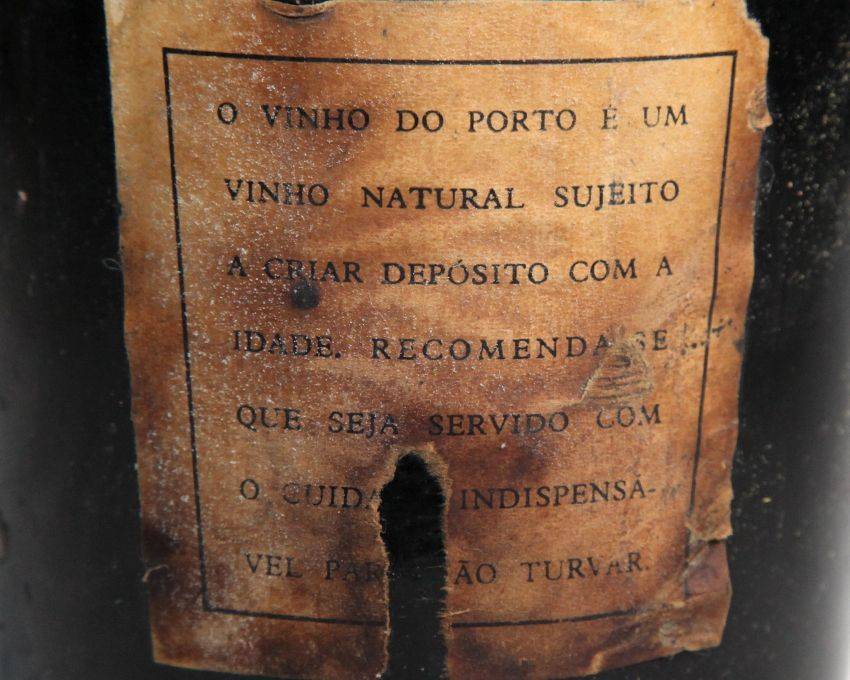 O VINHO DO PORTO É UM
VINHO NATURAL SUJEITO
A CRIAR DEPÓSITO COM A
IDADE. RECOMENDA-SE
QUE SEJA SERVIDO COM
O CUIDA INDISPENSÁ-
VEL PAR ÃO TURVAR.